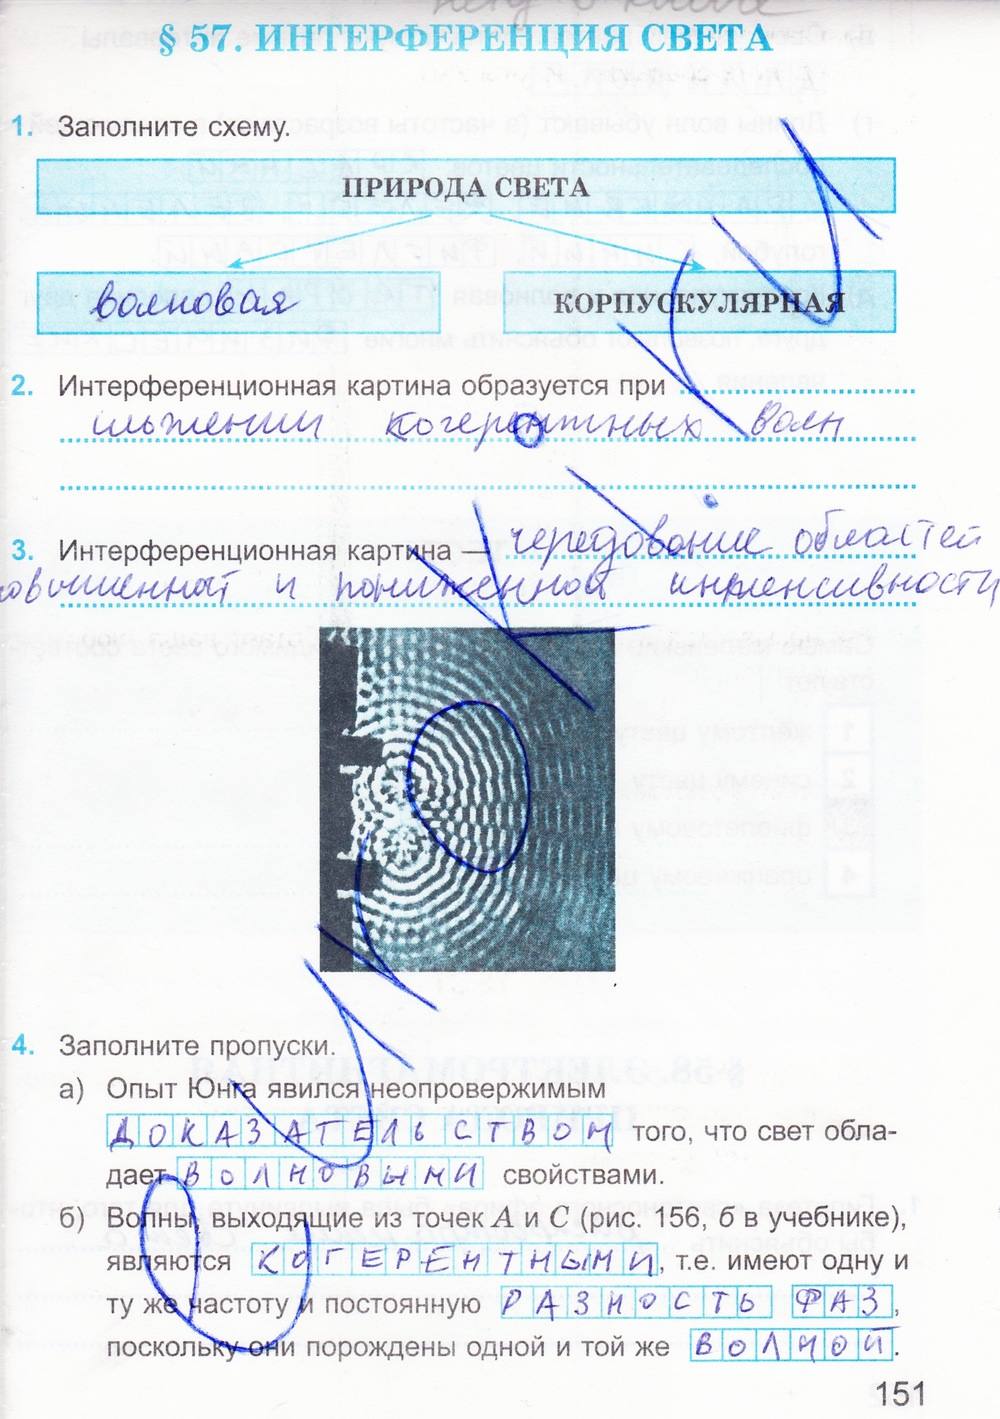 § 57. ИНТЕРФЕРЕНЦИЯ СВЕТА
1. Заполните схему.
ПРИРОДА СВЕТА
волновая
КОРПУСКУЛЯРНАЯ
2. Интерференционная картина образуется при
когерентных волн
3. Интерференционная картина — чередование областей
и пониженной интенсивности
4. Заполните пропуски.
а) Опыт Юнга явился неопровержимым
ДОКАЗАТЕЛЬСТВОМ того, что свет обла-
дает ВОЛНОВЫМИ свойствами.
б) Волны, выходящие из точек A и C (рис. 156, б в учебнике),
являются КОГЕРЕНТНЫМИ, т.е. имеют одну и
ту же частоту и постоянную РАЗНОСТЬ ФАЗ,
поскольку они порождены одной и той же ВОЛНОЙ.
151